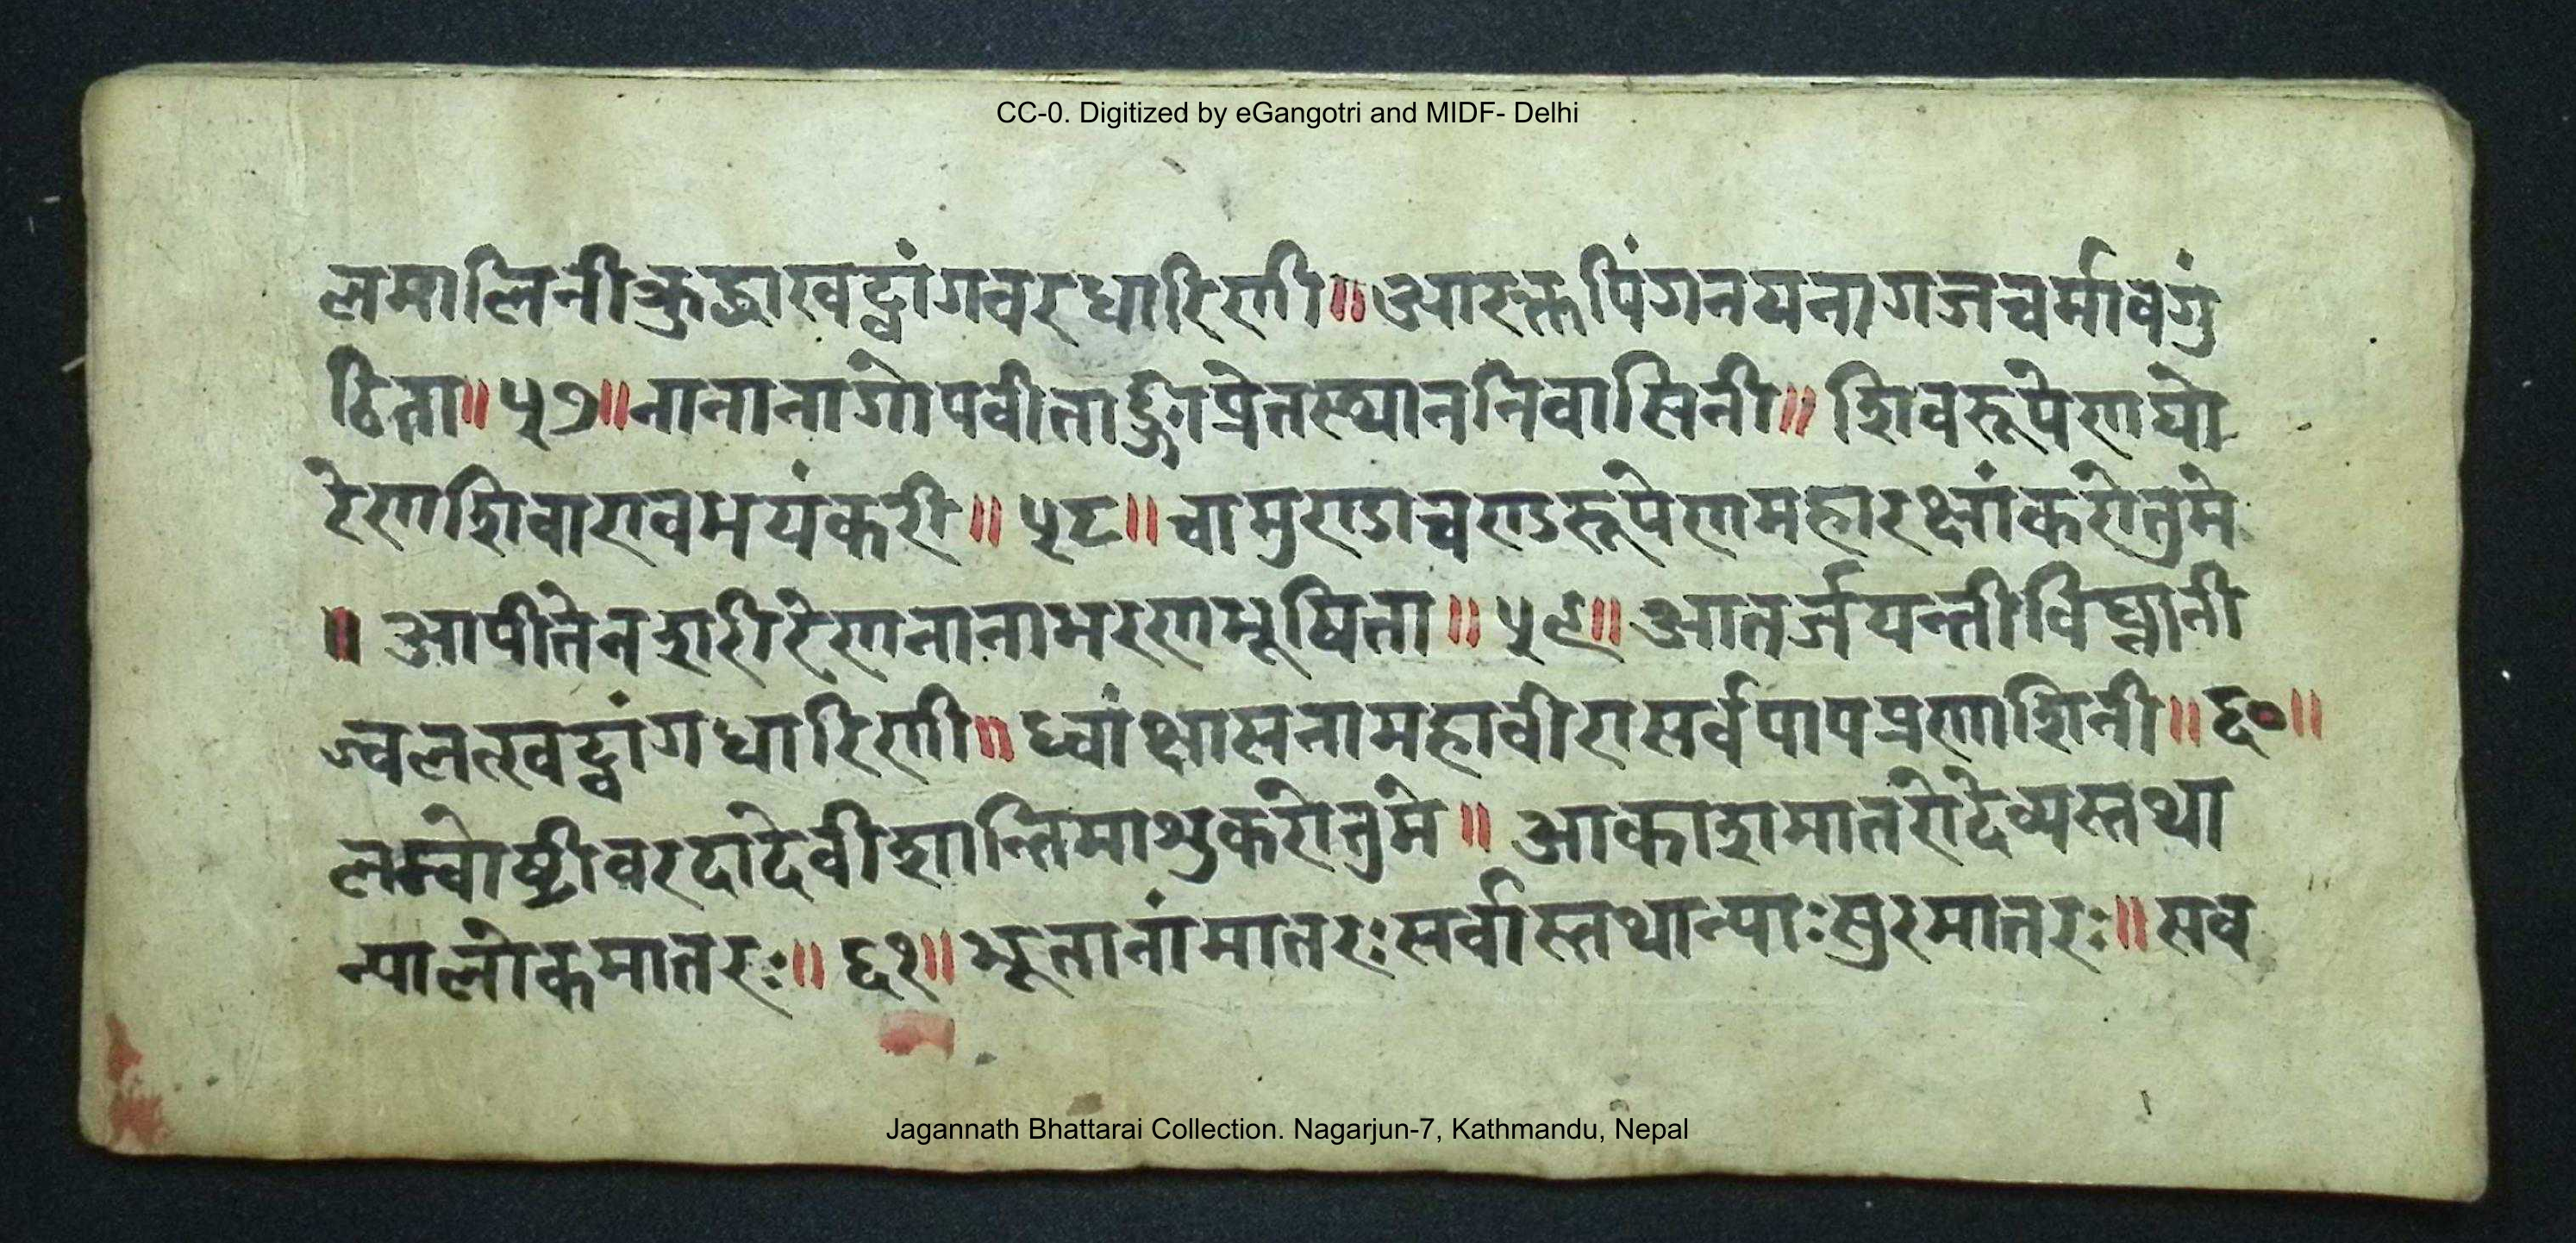 CC-0. Digitized by eGangotri and MIDF- Delhi
लमालिनीक्रुद्धाखट्वांगवरधारिणी॥आरक्तपिंगनयनागजचर्मावगुं
ठिता॥५७॥नानानागोपवीताङ्गीप्रेतस्थाननिवासिनी॥शिवरूपेणघो
रेणशिवारावभयंकरी॥५८॥चामुण्डाचण्डरूपेणमहारक्षांकरोतुमे
॥आपीतेनशरीरेणनानाभरणभूषिता॥५९॥आतर्जयन्तीविघ्नानी
ज्वलत्खट्वांगधारिणी॥ध्वांक्षासनामहावीरासर्वपापप्रणाशिनी॥६०॥
लम्वोष्ठीवरदादेवीशान्तिमाशुकरोतुमे॥आकाशमातरोदेव्यस्तथा
न्यालोकमातरः॥६१॥भूतानांमातरःसर्वास्तथान्याःसुरमातरः॥सव
Jagannath Bhattarai Collection. Nagarjun-7, Kathmandu, Nepal